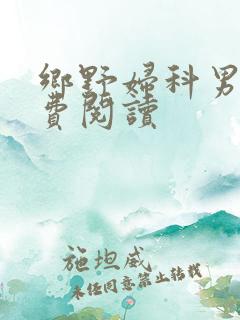 鄉野婦科男
費閱讀
施坦威
未任同意禁止转载